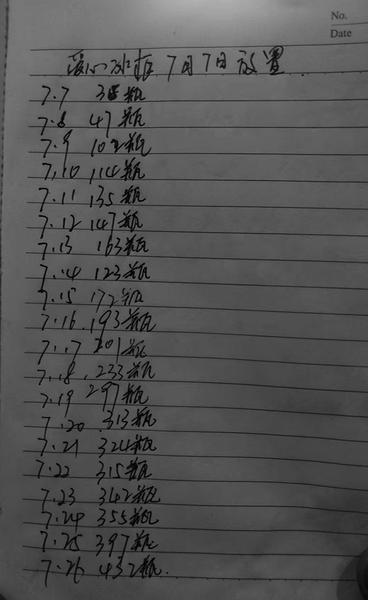 No.
Date
爱心冰柜 7月7日放置
7.7 38瓶
7.8 47瓶
7.9 102瓶
7.10 114瓶
7.11 135瓶
7.12 147瓶
7.13 163瓶
7.14 123瓶
7.15 172瓶
7.16 193瓶
7.17 201瓶
7.18 233瓶
7.19 297瓶
7.20 313瓶
7.21 324瓶
7.22 315瓶
7.23 342瓶
7.24 355瓶
7.25 397瓶
7.26 432瓶